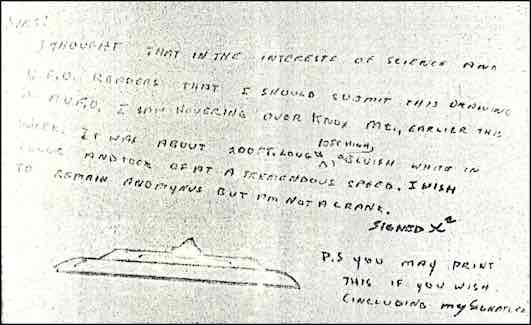 SIRS:
I THOUGHT THAT IN THE INTERESTS OF SCIENCE AND
U.F.O. READERS THAT I SHOULD SUBMIT THIS DRAWING
OF A U.F.O. I SAW HOVERING OVER KNOX MT., EARLIER THIS
WEEK. IT WAS ABOUT 200 FT. LONG BLUISH WHITE IN
10 FT HIGH,
AND TOOK OF AT A TREMENDOUS SPEED. I WISH
TO REMAIN ANOMYNUS BUT I'M NOT A CRANK.
SIGNED X²
P.S YOU MAY PRINT
THIS IF YOU WISH.
(INCLUDING MY SIGNATURE